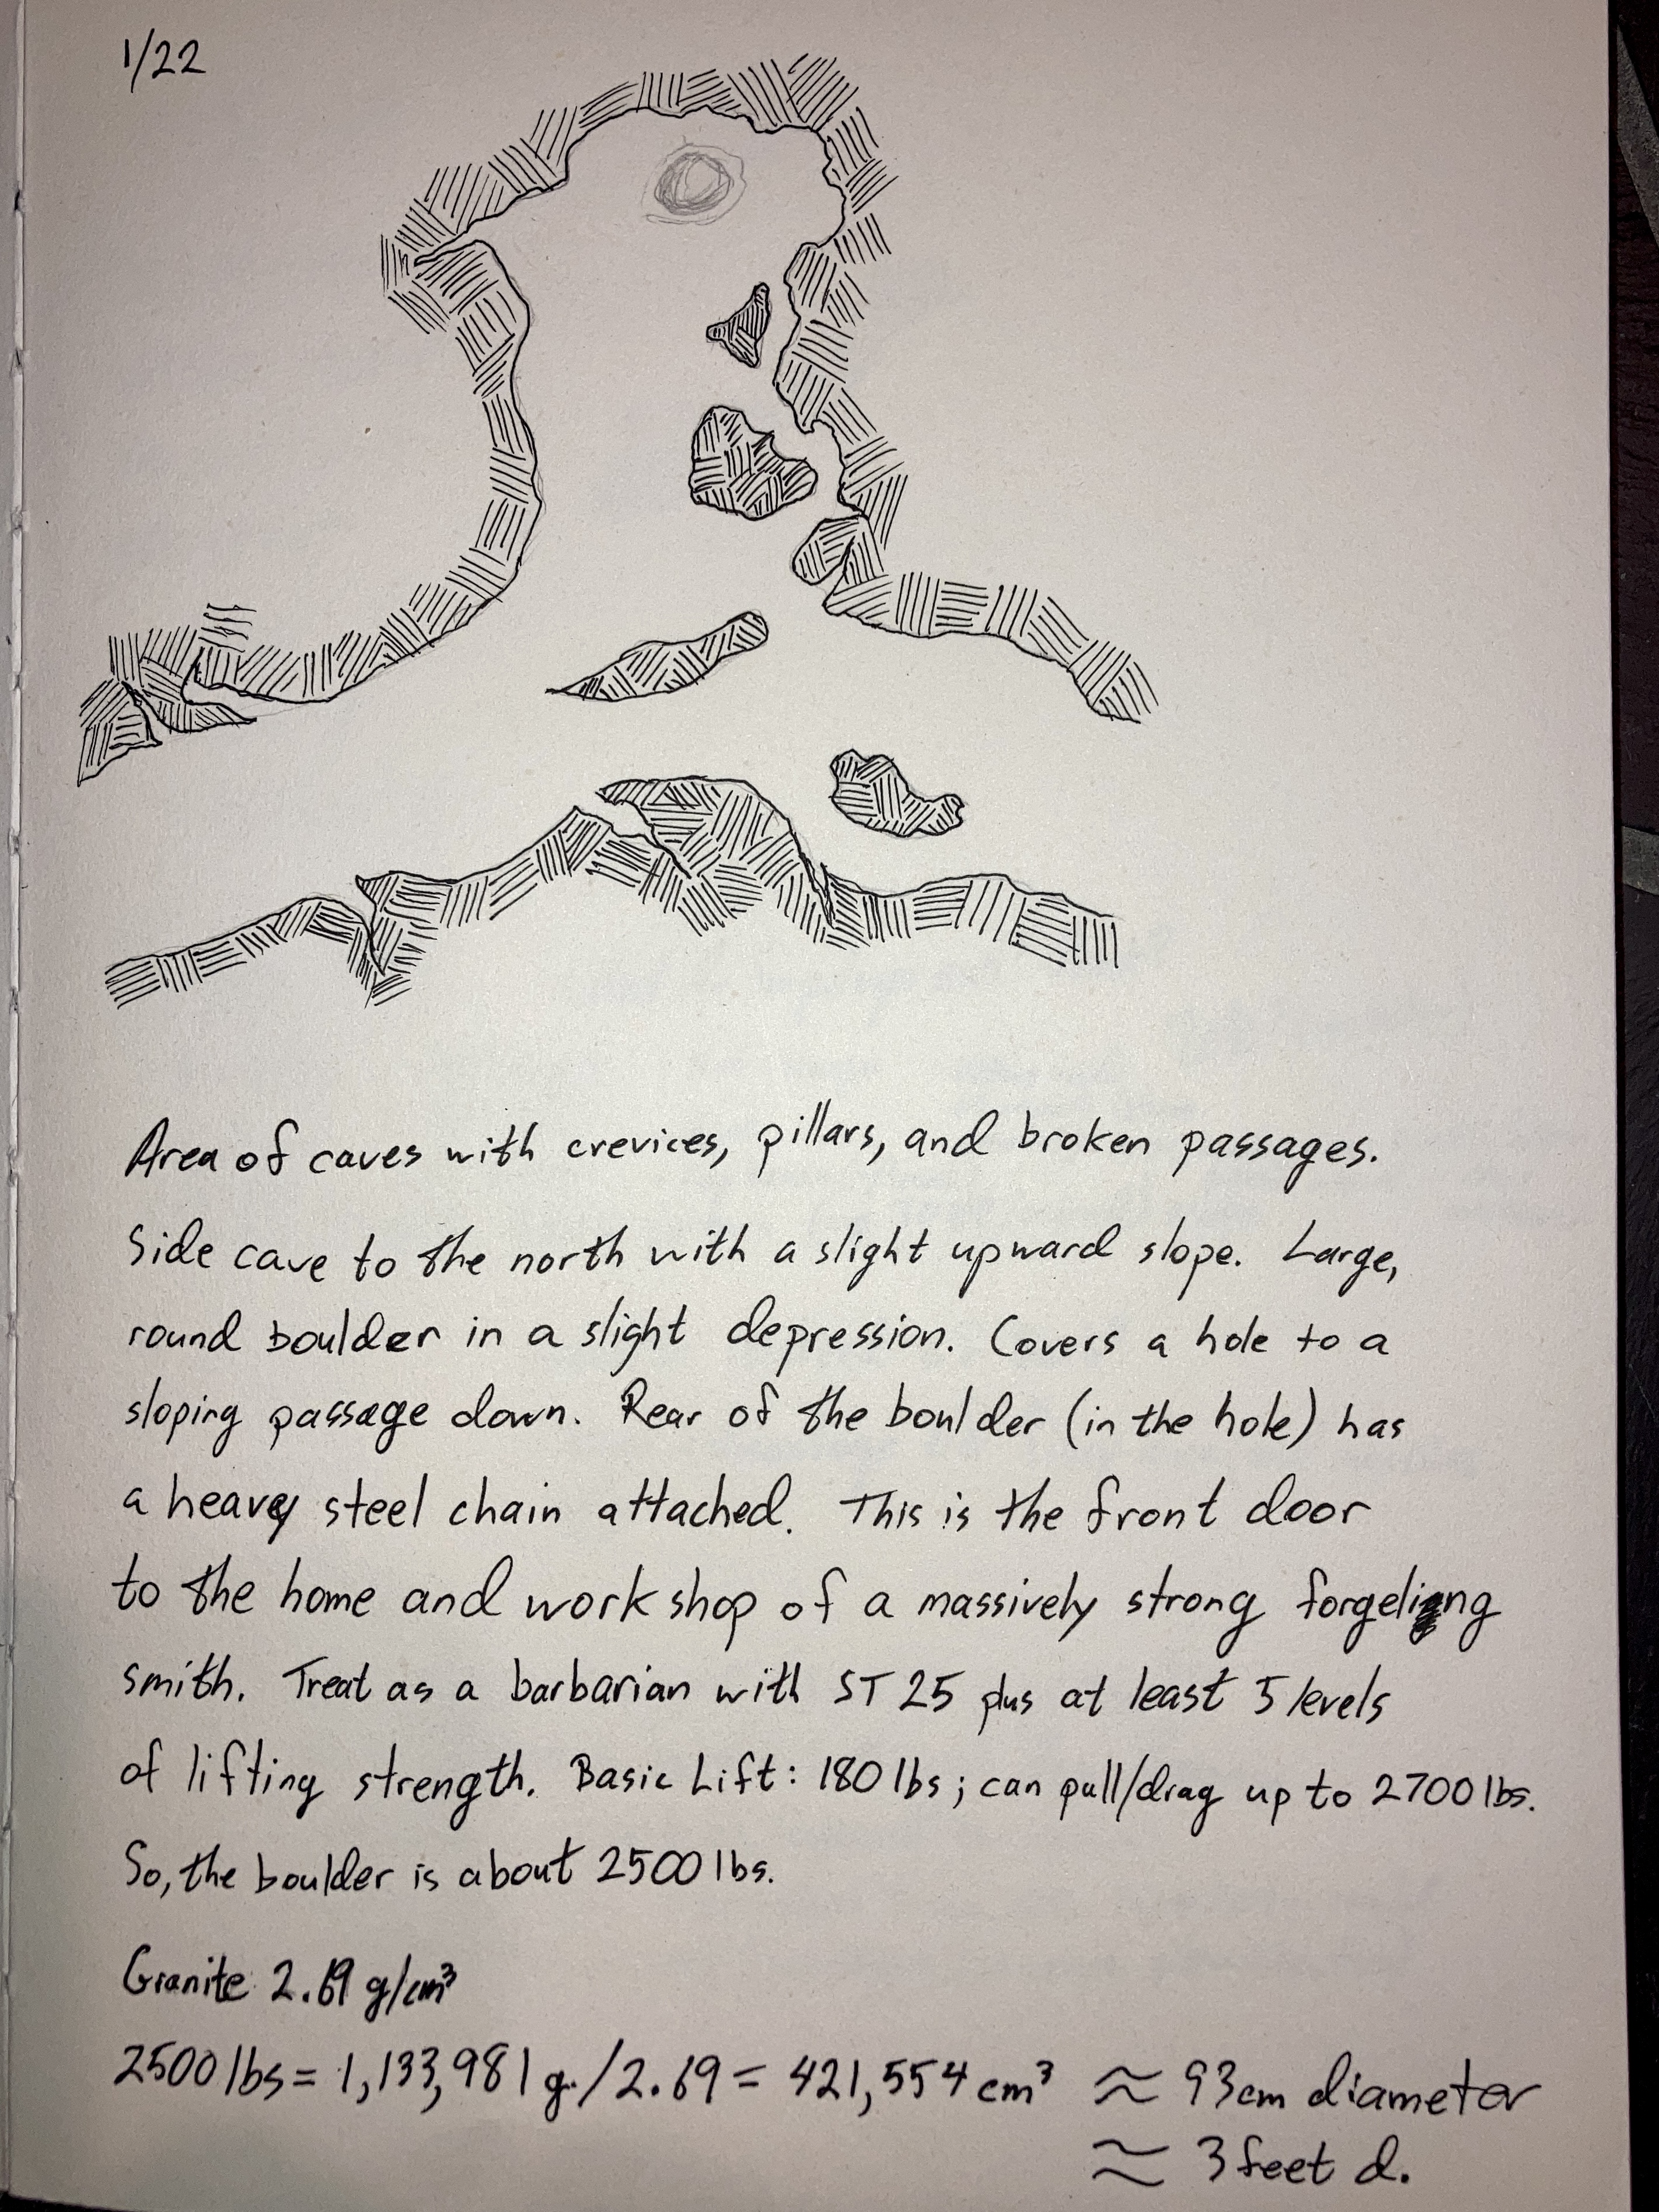 1/22
Area of caves with crevices, pillars, and broken passages.
Side cave to the north with a slight upward slope. Large,
round boulder in a slight depression. Covers a hole to a
sloping passage down. Rear of the boulder (in the hole) has
a heavy steel chain attached. This is the front door
to the home and workshop of a massively strong forgeling
smith. Treat as a barbarian with ST 25 plus at least 5 levels
of lifting strength. Basic Lift: 180 lbs; can pull/drag up to 2700 lbs.
So, the boulder is about 2500 lbs.
Granite 2.69 g/cm³
2500 lbs = 1,133,981 g. / 2.69 = 421,554 cm³ ≈ 93cm diameter
≈ 3 feet d.